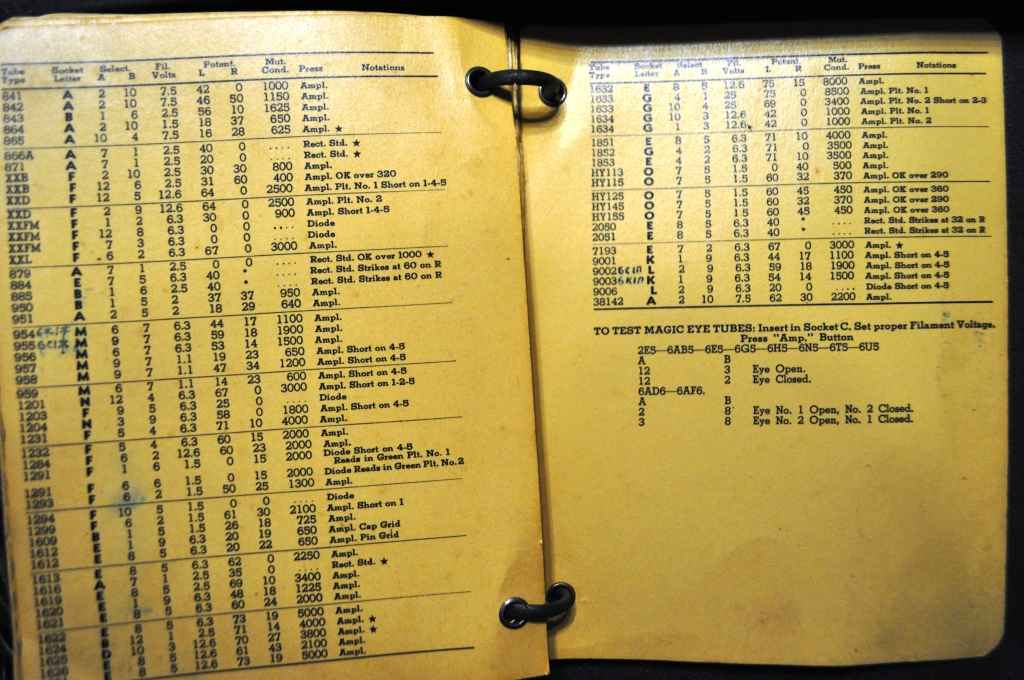 Tube Type Socket Letter Select. A B Fil. Volts Potent. L R Mut. Cond. Press Notations
841 A 2 10 7.5 42 0 1000 Ampl.
842 A 2 10 7.5 46 50 1150 Ampl.
843 B 1 6 2.5 56 10 1625 Ampl.
864 A 2 10 1.5 18 37 650 Ampl.
865 A 10 4 7.5 16 28 625 Ampl. ★
866A A 7 1 2.5 40 0 .... Rect. Std. ★
871 A 7 1 2.5 20 0 .... Rect. Std. ★
XXB F 2 10 2.5 30 30 800 Ampl.
XXB F 6 2.5 31 60 400 Ampl. OK over 320
XXD F 12 5 12.6 64 0 2500 Ampl. Plt. No. 1 Short on 1-4-5
XXD F 2 9 12.6 64 0 2500 Ampl. Plt. No. 2
XXFM F 1 2 6.3 30 0 900 Ampl. Short 1-4-5
XXFM F 12 8 6.3 0 0 .... Diode
XXFM F 7 3 6.3 0 0 .... Diode
XXL F 6 2 6.3 67 0 3000 Ampl.
879 A 7 1 2.5 0 0 .... Rect. Std. OK over 1000 ★
884 E 7 5 6.3 40 * .... Rect. Std. Strikes at 60 on R
885 B 1 5 2.5 40 * .... Rect. Std. Strikes at 60 on R
950 B 1 5 2 37 37 950 Ampl.
951 A 2 18 29 640 Ampl.
954 M 6 7 6.3 44 17 1100 Ampl.
955 6C1X M 9 7 6.3 59 18 1900 Ampl.
956 M 6 7 6.3 53 14 1500 Ampl.
957 M 9 7 1.1 19 23 650 Ampl. Short on 4-5
958 M 9 7 1.1 47 34 1200 Ampl. Short on 4-5
959 M 6 7 1.1 14 23 600 Ampl. Short on 4-5
1201 N 12 4 6.3 67 0 3000 Ampl. Short on 1-2-5
1203 F 9 5 6.3 25 0 .... Diode
1204 F 3 9 6.3 58 0 1800 Ampl. Short on 4-5
1231 F 5 4 6.3 71 10 4000 Ampl.
1232 F 5 4 6.3 60 15 2000 Ampl.
1284 F 6 2 12.6 60 23 2000 Ampl.
1291 F 1 6 1.5 0 15 2000 Diode Short on 4-5
Reads in Green Plt. No. 1
1291 F 6 6 1.5 0 15 2000 Diode Reads in Green Plt. No.2
1293 F 6 2 1.5 50 25 1300 Ampl.
1294 F 10 5 1.5 0 0 .... Diode
1299 F 6 2 1.5 61 30 2100 Ampl. Short on 1
1609 B 1 5 1.5 26 18 725 Ampl.
1612 E 1 9 6.3 20 19 650 Ampl. Cap Grid
1612 E 6 5 6.3 20 22 650 Ampl. Pin Grid
1613 E 8 5 6.3 62 0 2250 Ampl.
1616 A 7 1 2.5 35 0 .... Rect. Std. ★
1619 E 8 5 2.5 69 10 3400 Ampl.
1620 E 1 9 6.3 48 18 1225 Ampl.
1621 E 8 5 6.3 60 24 2000 Ampl.
1622 E 8 5 6.3 73 19 5000 Ampl.
1624 B 12 1 2.5 71 14 4000 Ampl. ★
1625 D 10 3 12.6 70 27 3800 Ampl. ★
1626 E 8 5 12.6 61 43 2100 Ampl.
E 8 5 12.6 73 19 5000 Ampl.
Tube Type Socket Letter Select A B Fil. Volts Potent. L R Mut. Cond. Press Notations
1632 E 8 5 12.6 75 15 8000 Ampl.
1633 G 4 1 25 75 0 8500 Ampl. Plt. No. 1
1633 G 10 4 25 69 0 3400 Ampl. Plt. No. 2 Short on 2-3
1634 G 10 3 12.6 42 0 1000 Ampl. Plt. No. 1
1634 G 1 3 12.6 42 0 1000 Ampl. Plt. No. 2
1851 E 8 5 6.3 71 10 4000 Ampl.
1852 G 4 2 6.3 71 0 3500 Ampl.
1853 E 4 2 6.3 71 10 3500 Ampl.
HY113 O 7 5 1.5 0 40 500 Ampl.
HY115 O 7 5 1.5 60 32 370 Ampl. OK over 290
HY125 O 7 5 1.5 60 45 450 Ampl. OK over 360
HY145 O 7 5 1.5 60 32 370 Ampl. OK over 290
HY155 O 7 5 1.5 60 45 450 Ampl. OK over 360
2050 E 8 5 6.3 40 * .... Rect. Std. Strikes at 32 on R
2051 E 8 5 6.3 40 * .... Rect. Std. Strikes at 32 on R
7193 E 7 2 6.3 67 0 3000 Ampl. ★
9001 K 1 9 6.3 44 17 1100 Ampl. Short on 4-5
9002 L 2 9 6.3 59 18 1900 Ampl. Short on 4-5
9003 K 1 9 6.3 54 14 1500 Ampl. Short on 4-5
9006 L 2 9 6.3 20 0 .... Diode Short on 4-5
38142 A 2 10 7.5 62 30 2200 Ampl.
TO TEST MAGIC EYE TUBES: Insert in Socket C. Set proper Filament Voltage.
Press "Amp." Button
2E5—6AB5—6E5—6G5—6H5—6N5—6T5—6U5
A B
12 3 Eye Open.
12 2 Eye Closed.
6AD6—6AF6.
A B
2 8 Eye No. 1 Open, No. 2 Closed.
3 8 Eye No. 2 Open, No. 1 Closed.